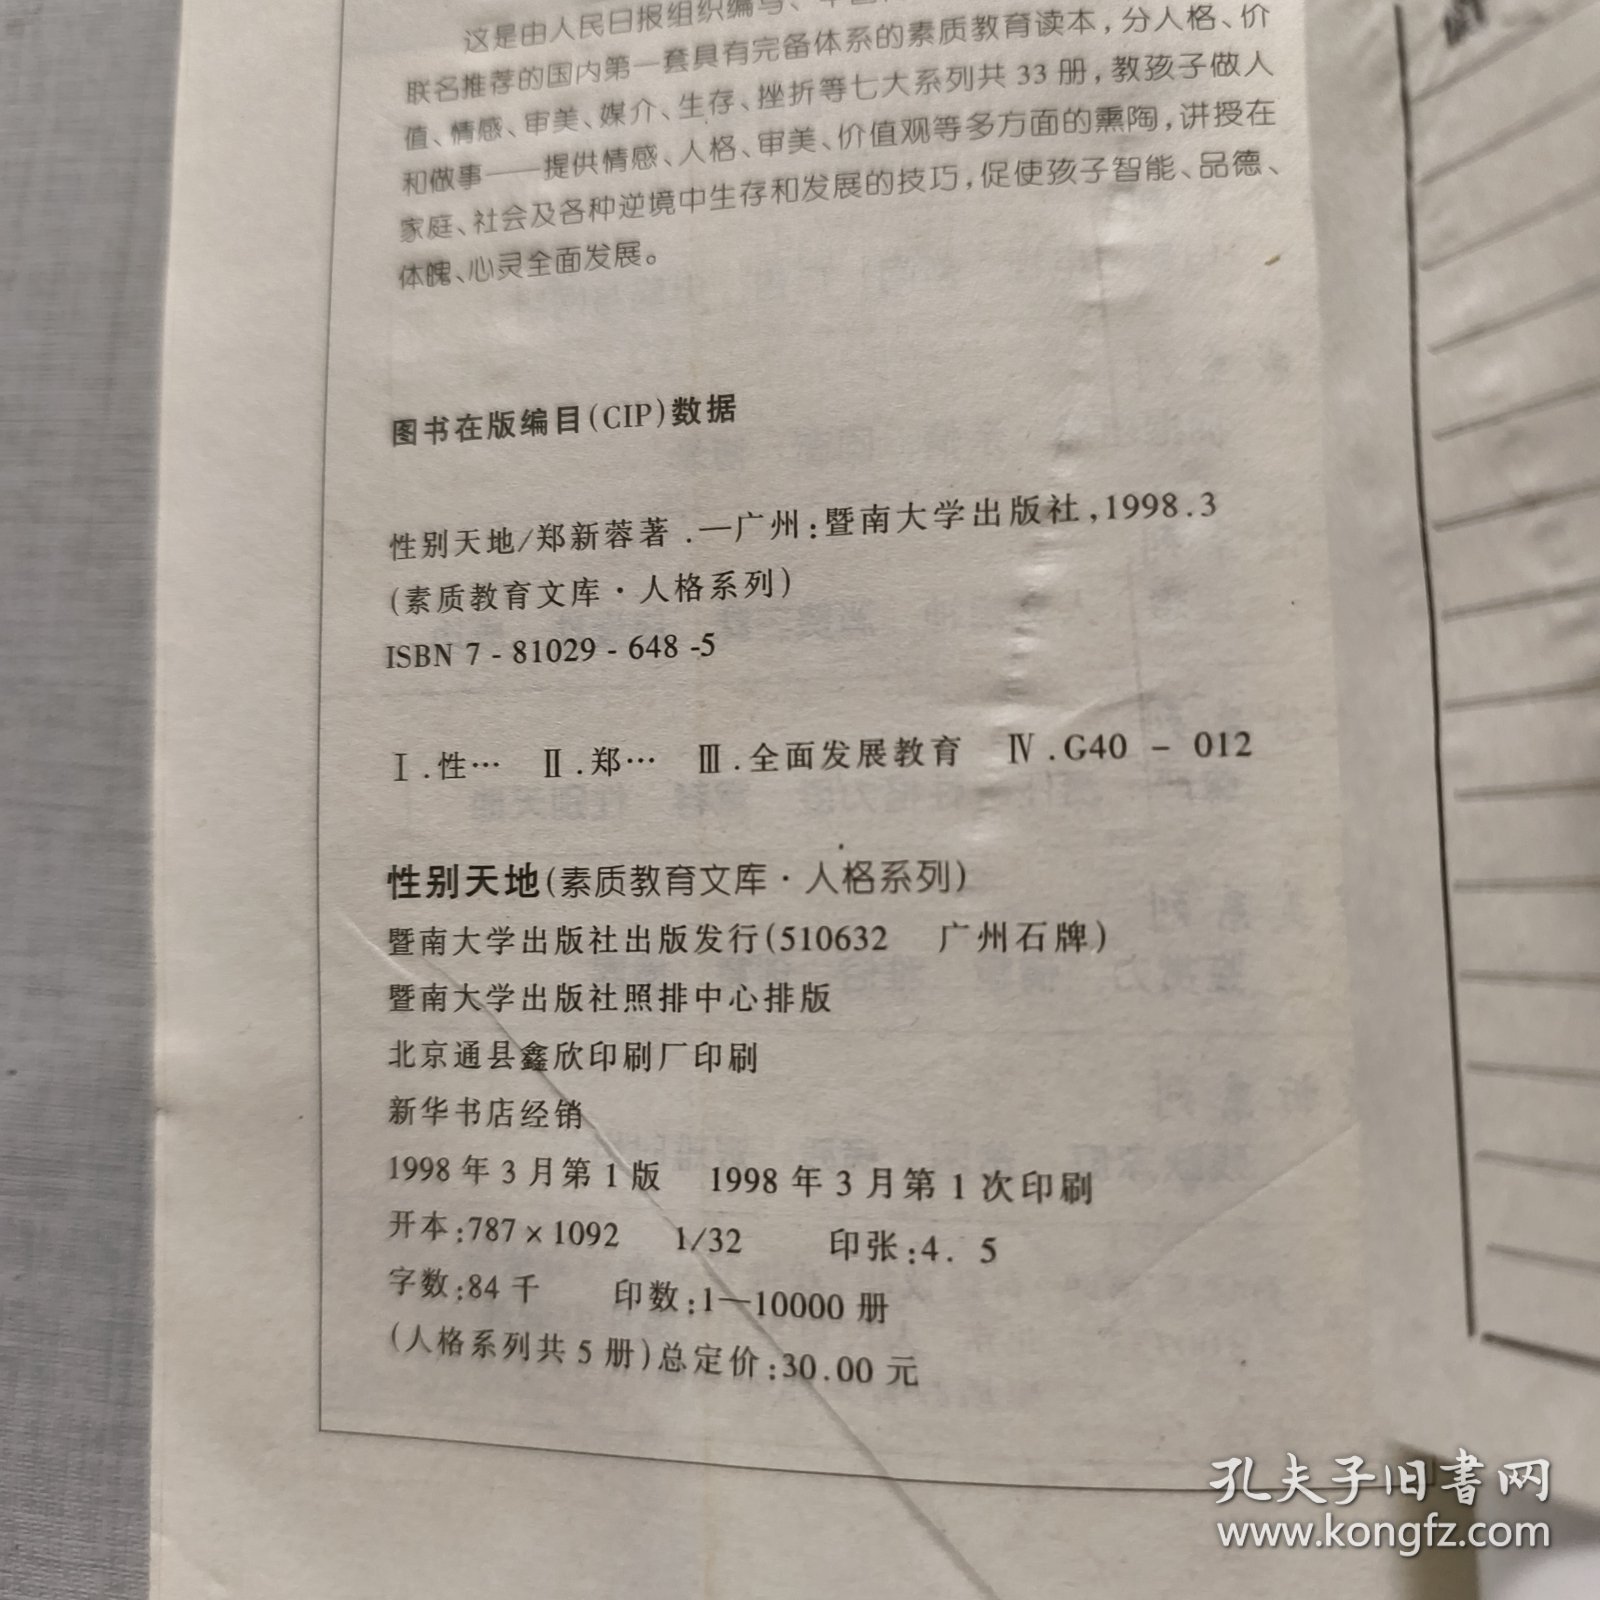 这是由人民日报组织编写、
联名推荐的国内第一套具有完备体系的素质教育读本，分人格、价
值、情感、审美、媒介、生存、挫折等七大系列共 33 册，教孩子做人
和做事——提供情感、人格、审美、价值观等多方面的熏陶，讲授在
家庭、社会及各种逆境中生存和发展的技巧，促使孩子智能、品德、
体魄、心灵全面发展。
图书在版编目(CIP)数据
性别天地/郑新蓉著.—广州:暨南大学出版社,1998.3
(素质教育文库·人格系列)
ISBN 7-81029-648-5
Ⅰ.性… Ⅱ.郑… Ⅲ.全面发展教育 Ⅳ.G40-012
性别天地(素质教育文库·人格系列)
暨南大学出版社出版发行(510632 广州石牌)
暨南大学出版社照排中心排版
北京通县鑫欣印刷厂印刷
新华书店经销
1998年3月第1版 1998年3月第1次印刷
开本:787×1092 1/32 印张:4.5
字数:84千 印数:1—10000册
(人格系列共5册)总定价:30.00元
孔夫子旧书网
www.kongfz.com